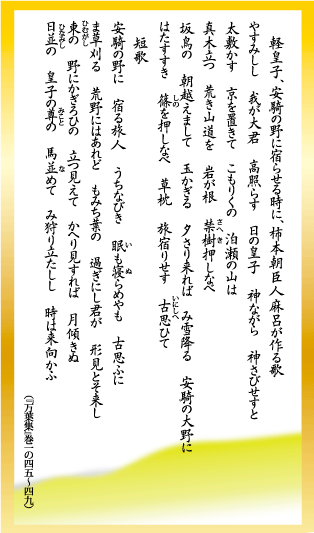 軽皇子、安騎の野に宿らせる時に、柿本朝臣人麻呂が作る歌
やすみしし 我が大君 高照らす 日の皇子 神ながら 神さびせすと
太敷かす 京を置きて こもりくの 泊瀬の山は
真木立つ 荒き山道を 岩が根 禁樹押しなべ
さへき
坂鳥の 朝越えまして 玉かぎる 夕さり来れば み雪降る 安騎の大野に
はたすすき 篠を押しなべ 草枕 旅宿りせす 古思ひて
しの
いにしへ
短歌
安騎の野に 宿る旅人 うちなびき 眠も寝らめやも 古思ふに
い
ぬ
ま草刈る 荒野にはあれど もみち葉の 過ぎにし君が 形見とそ来し
東の 野にかぎろひの 立つ見えて かへり見すれば 月傾きぬ
ひむがし
日並の 皇子の尊の 馬並めて み狩り立たしし 時は来向かふ
ひなみし
みこと
な
(『万葉集』巻一の四五〜四九)